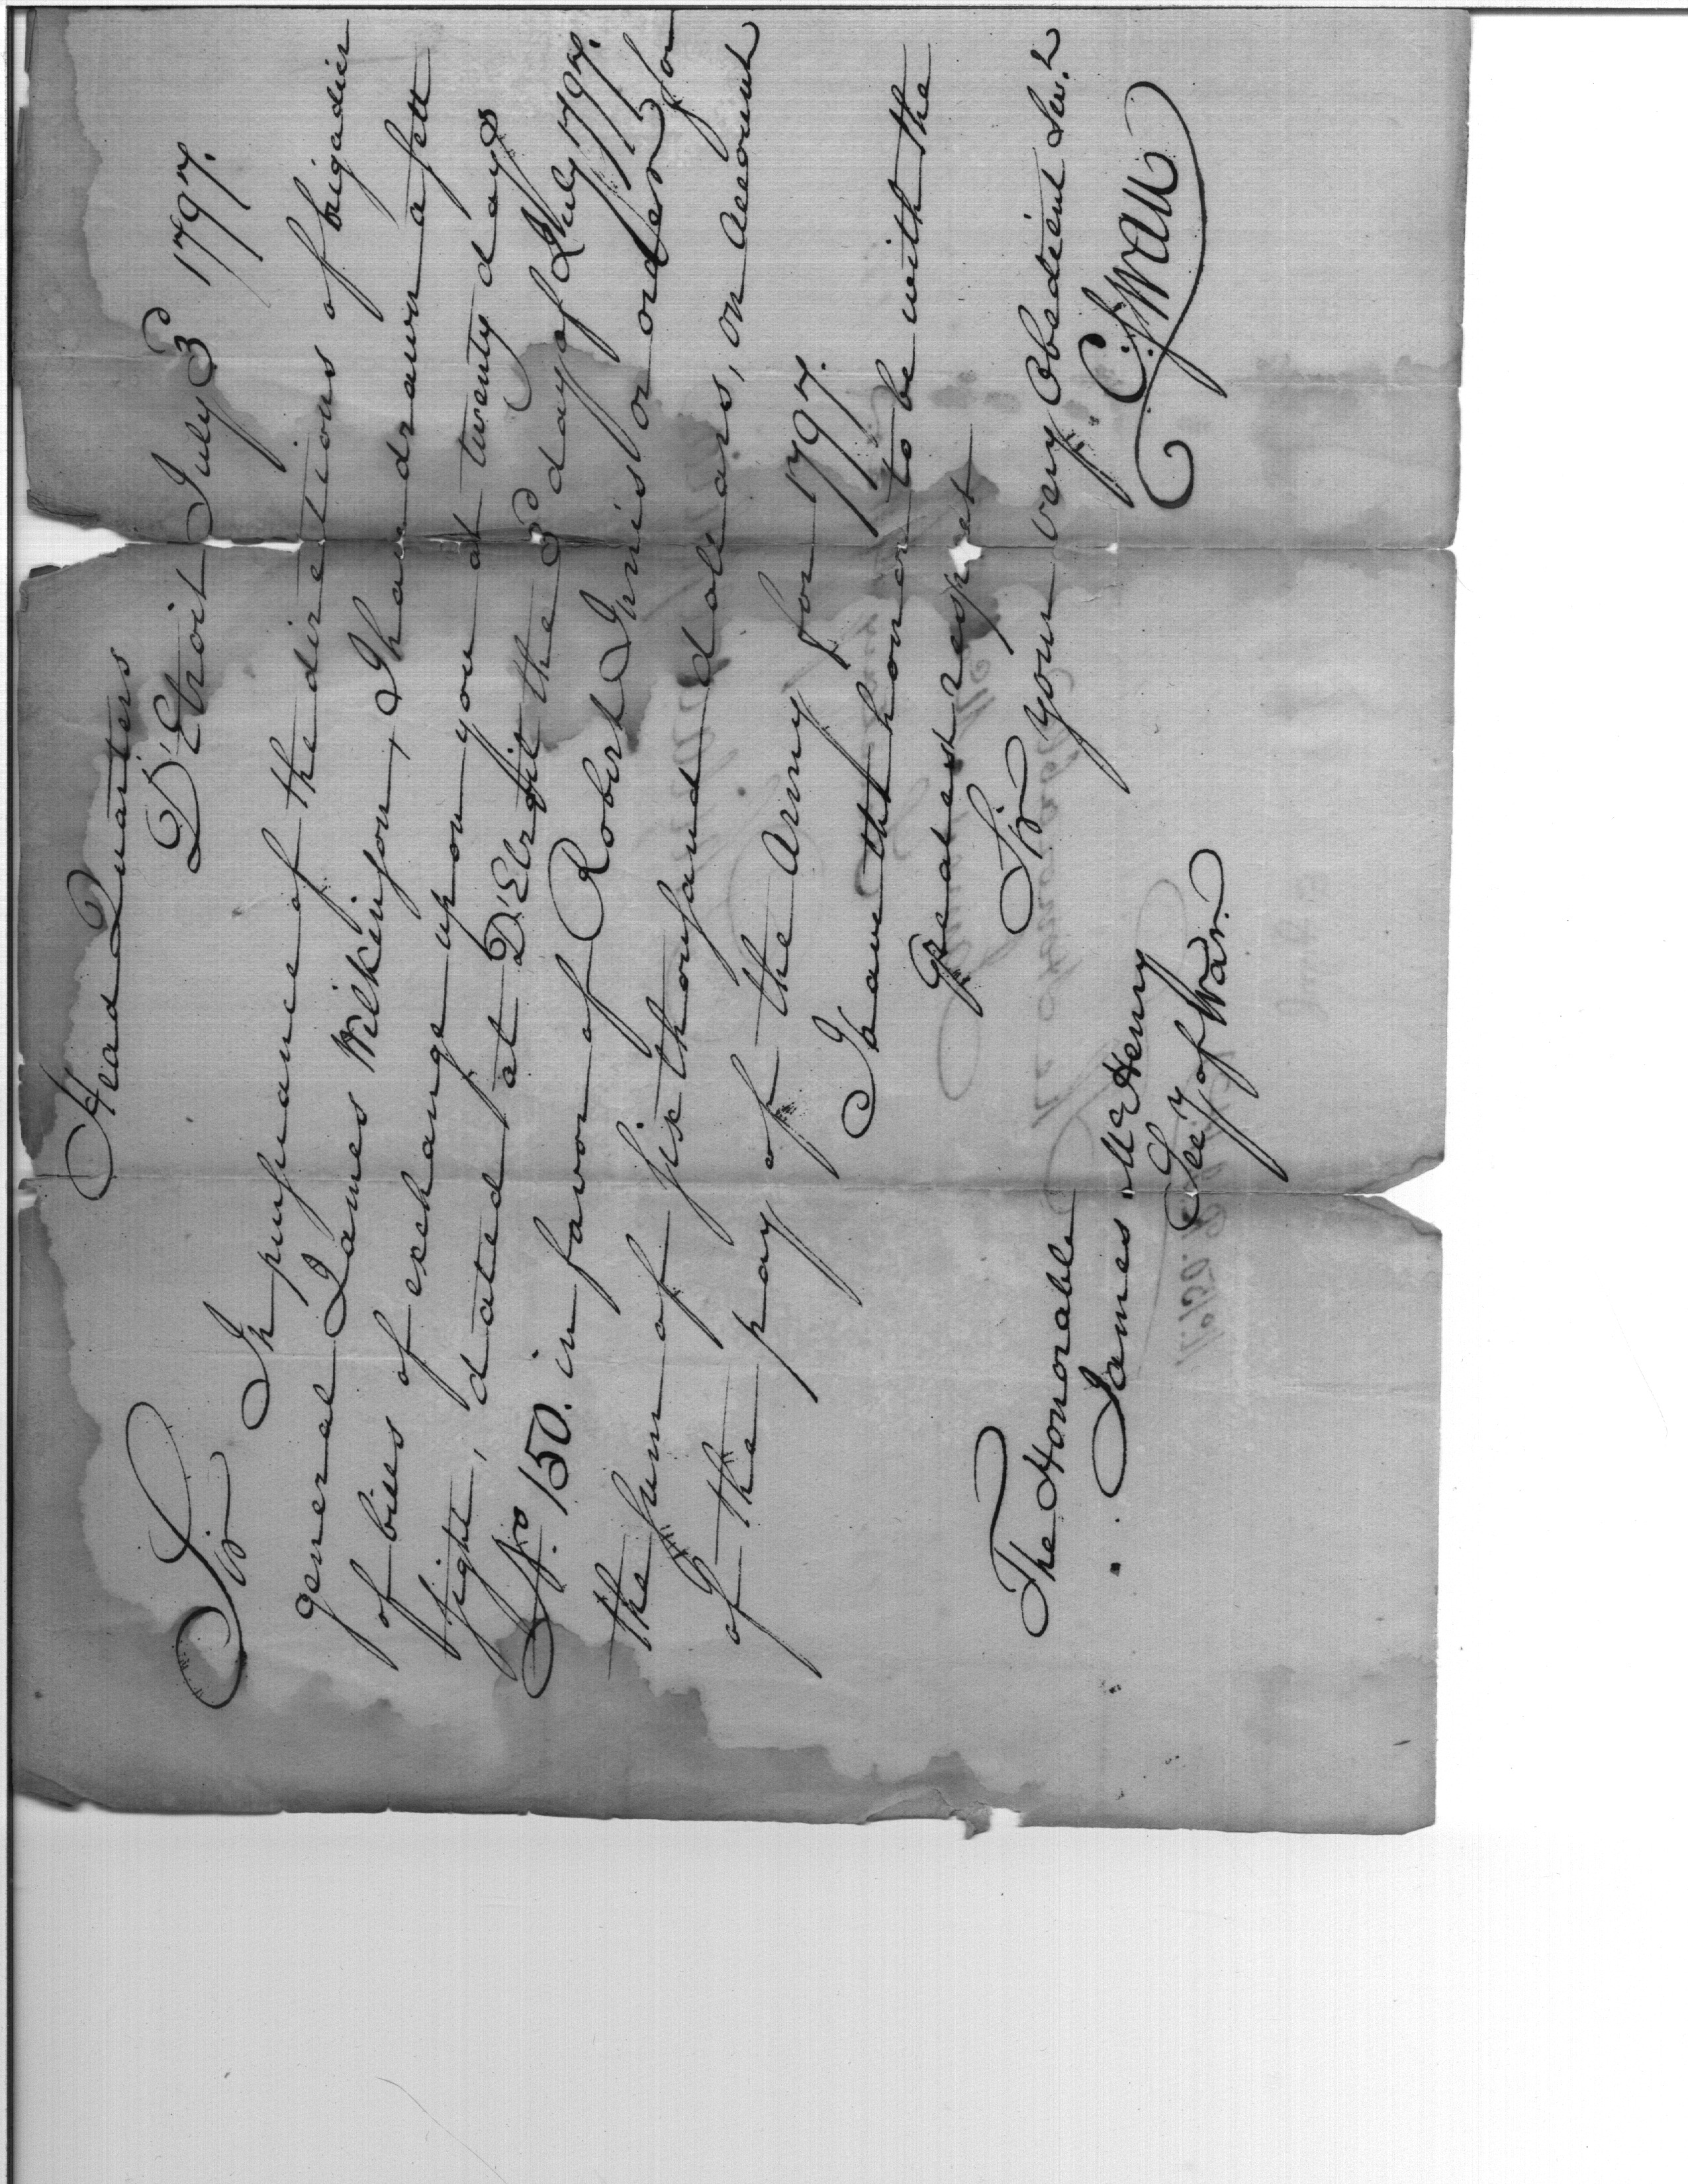 Head Quarters
D'Etroit July 3d 1797.
Sir
In pursuance of the directions of brigadier
general James Wilkinson, I have drawn a sett
of bills of exchange upon you at twenty days
sight, dated at D'Etroit the 3d day of July 1797.
No. 150. in favor of Robert Innis or order for
the sum of six thousand dollars, on account
of the pay of the Army for 1797.
I have the honor to be with the
greatest respect
Sir your very Obedient Servt
C. Swan
The Honorable
James McHenry
Secy of War.